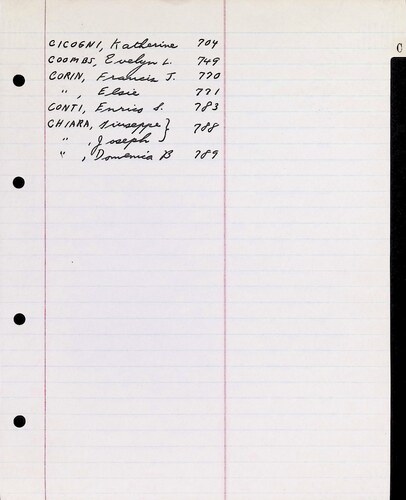 C
CICOGNI, Katherine 704
COOMBS, Evelyn L. 749
CORIN, Francis J. 770
", Elsie 771
CONTI, Enrico S. 783
CHIARA, Giuseppe } 788
", Joseph }
", Domenica B 789